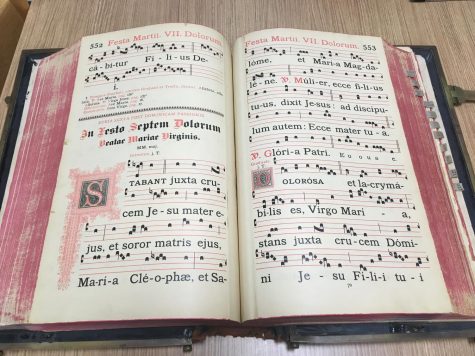 552 Festa Martii. VII. Dolorum.
cá- bi- tur Fi - li - us De -
i.
In Festo Septem Dolorum
Beatae Mariae Virginis.
STABANT juxta cru-
cem Je - su mater e-
jus, et soror matris ejus,
Ma-ri-a Clé-o-phæ, et Sa-
Festa Martii. VII. Dolorum. 553
lóme, et Marí-a Magda-
lé-ne. ℣. Múli-er, ecce fíli-us
tu-us, dixit Jesus: ad discípu-
lum autem: Ecce mater tu-a.
℣. Glóri-a Patri. E u o u a e.
DOLORÓSA et lacrymá-
bi-lis es, Virgo Marí - a,
stans juxta cru-cem Dómi-
ni Je - su Fí-li-i tu - i